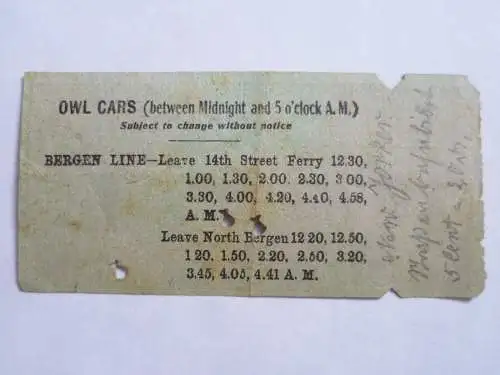 OWL CARS (between Midnight and 5 o'clock A. M.)
Subject to change without notice
BERGEN LINE—Leave 14th Street Ferry 12.30,
1.00, 1.30, 2.00. 2.30, 3 00,
3.30, 4.00, 4.20, 4.40, 4.58,
A. M.
Leave North Bergen 12 20, 12.50,
1 20. 1.50, 2.20, 2.50, 3.20,
3.45, 4.05, 4.41 A. M.
5 Cent - 20